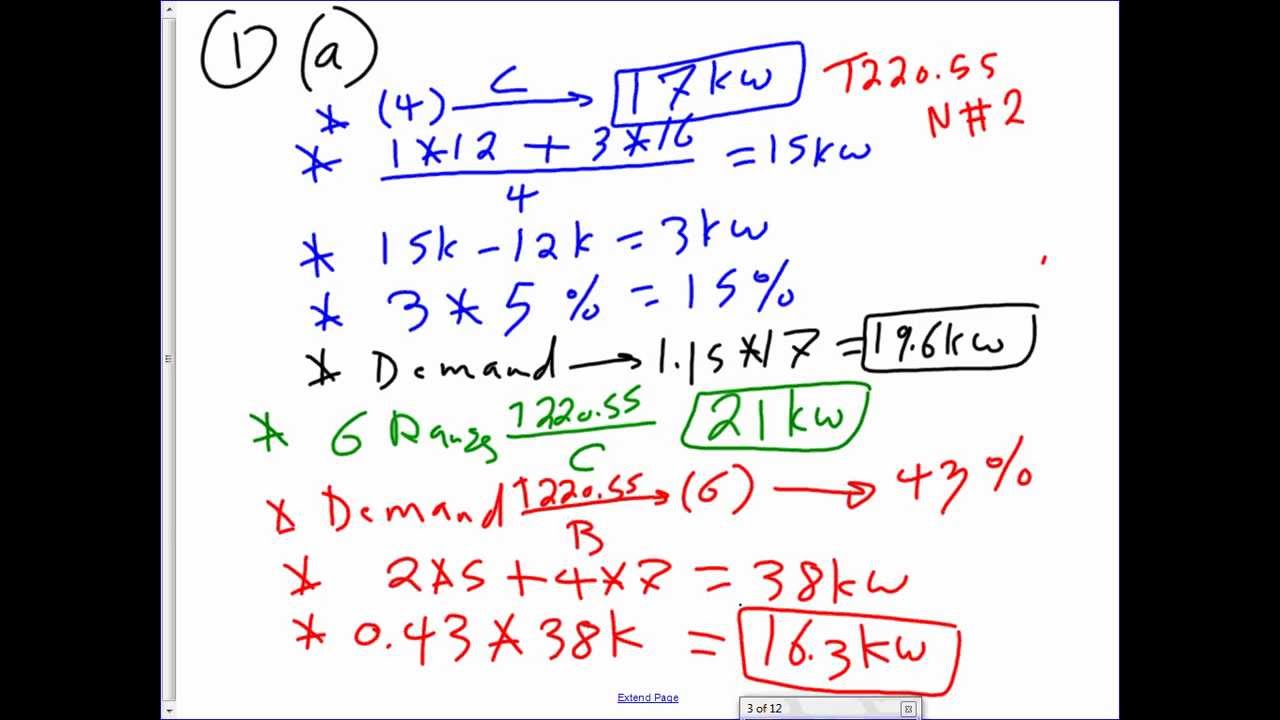 ① (a)
* (4) C → 17kw T220.55
N#2
* 1*12 + 3*16 = 15kw
4
* 15k - 12k = 3kw
* 3 * 5% = 15%
* Demand → 1.15*17 = 19.6kw
* 6 Ranges T220.55 21kw
C
* Demand T220.55 → (6) → 43%
B
* 2*5 + 4*7 = 38kw
* 0.43 * 38k = 16.3kw
Extend Page
3 of 12